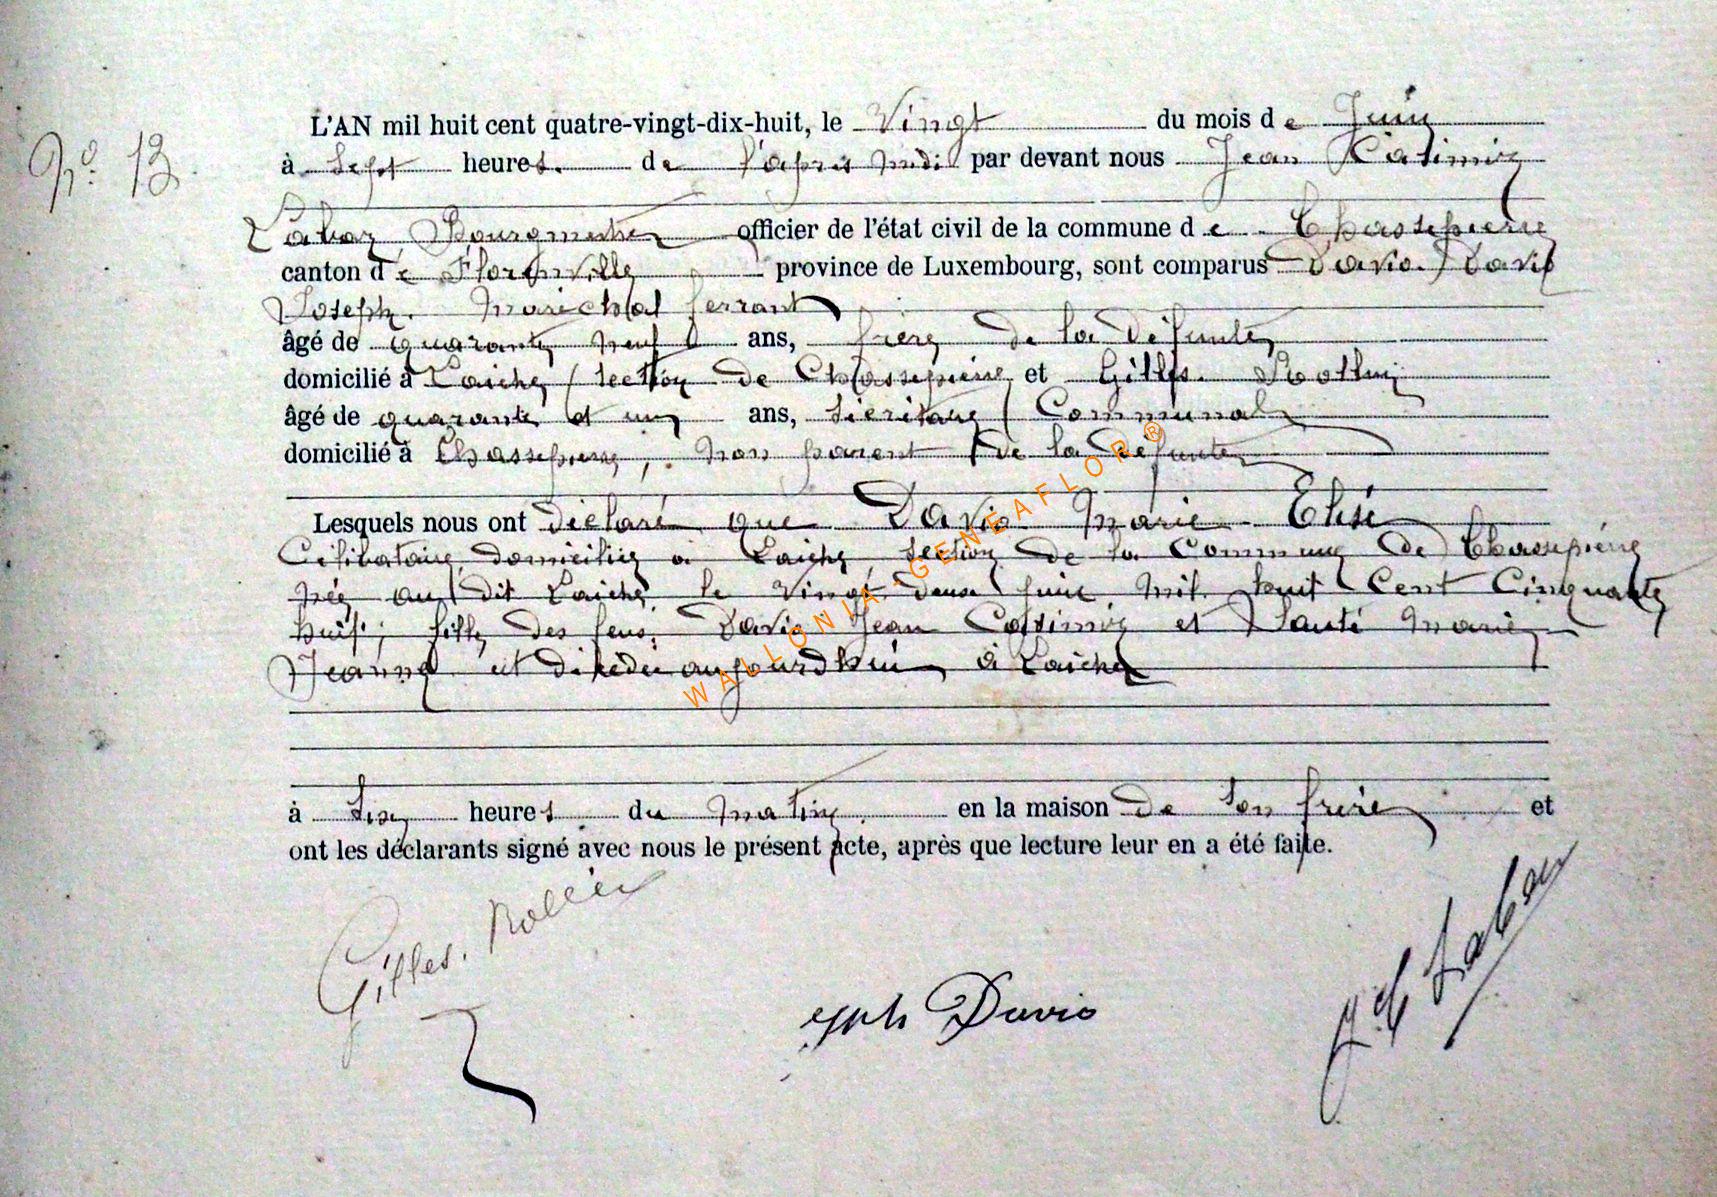 N.º 13
L'AN mil huit cent quatre-vingt-dix-huit, le Vingt du mois de Juin
à Sept heures. de l'après midi par devant nous Jean Casimir
Labar Bourgmestre officier de l'état civil de la commune de Chassepierre
canton de Florenville province de Luxembourg, sont comparus David
Joseph. Maréchal ferrant
âgé de quarante neuf ans, frère de la défunte,
domicilié à Laiche, section de Chassepierre et Gilles.
âgé de quarante et un ans, secrétaire Communal
domicilié à Chassepierre, non parent de la défunte
Lesquels nous ont déclaré que Marie Elise
Célibataire, domiciliée à Laiche, section de la Commune de Chassepierre
née au dit Laiche le vingt deux juin mil huit Cent Cinquante
huit; fille des feus. Jean Casimir et Marie
Jeanne est décédée aujourdhui à Laiche
à six heures. du matin. en la maison de son frère et
ont les déclarants signé avec nous le présent acte, après que lecture leur en a été faite.
Gilles.
J. C. Labar
WALLONIA-GENEAFLOR ®